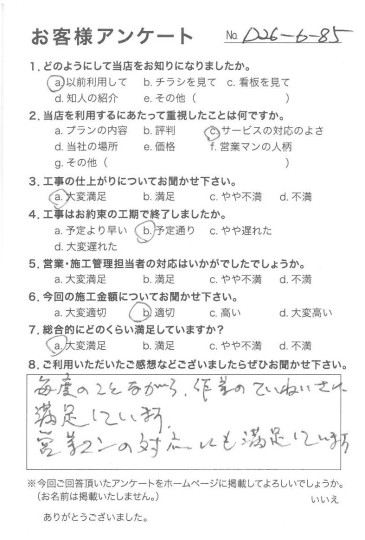 お客様アンケート No. D26-6-85
1. どのようにして当店をお知りになりましたか。
a. 以前利用して b. チラシを見て c. 看板を見て
d. 知人の紹介 e. その他（ ）
2. 当店を利用するにあたって重視したことは何ですか。
a. プランの内容 b. 評判 c. サービスの対応のよさ
d. 当社の場所 e. 価格 f. 営業マンの人柄
g. その他（ ）
3. 工事の仕上がりについてお聞かせ下さい。
a. 大変満足 b. 満足 c. やや不満 d. 不満
4. 工事はお約束の工期で終了しましたか。
a. 予定より早い b. 予定通り c. やや遅れた
d. 大変遅れた
5. 営業・施工管理担当者の対応はいかがでしたでしょうか。
a. 大変満足 b. 満足 c. やや不満 d. 不満
6. 今回の施工金額についてお聞かせ下さい。
a. 大変適切 b. 適切 c. 高い d. 大変高い
7. 総合的にどのくらい満足していますか?
a. 大変満足 b. 満足 c. やや不満 d. 不満
8. ご利用いただいたご感想などございましたらぜひお聞かせ下さい。
毎度のことながら、作業のていねいさに
満足しています。
営業マンの対応にも満足しています
※今回ご回答頂いたアンケートをホームページに掲載してよろしいでしょうか。
（お名前は掲載いたしません。） いいえ
ありがとうございました。